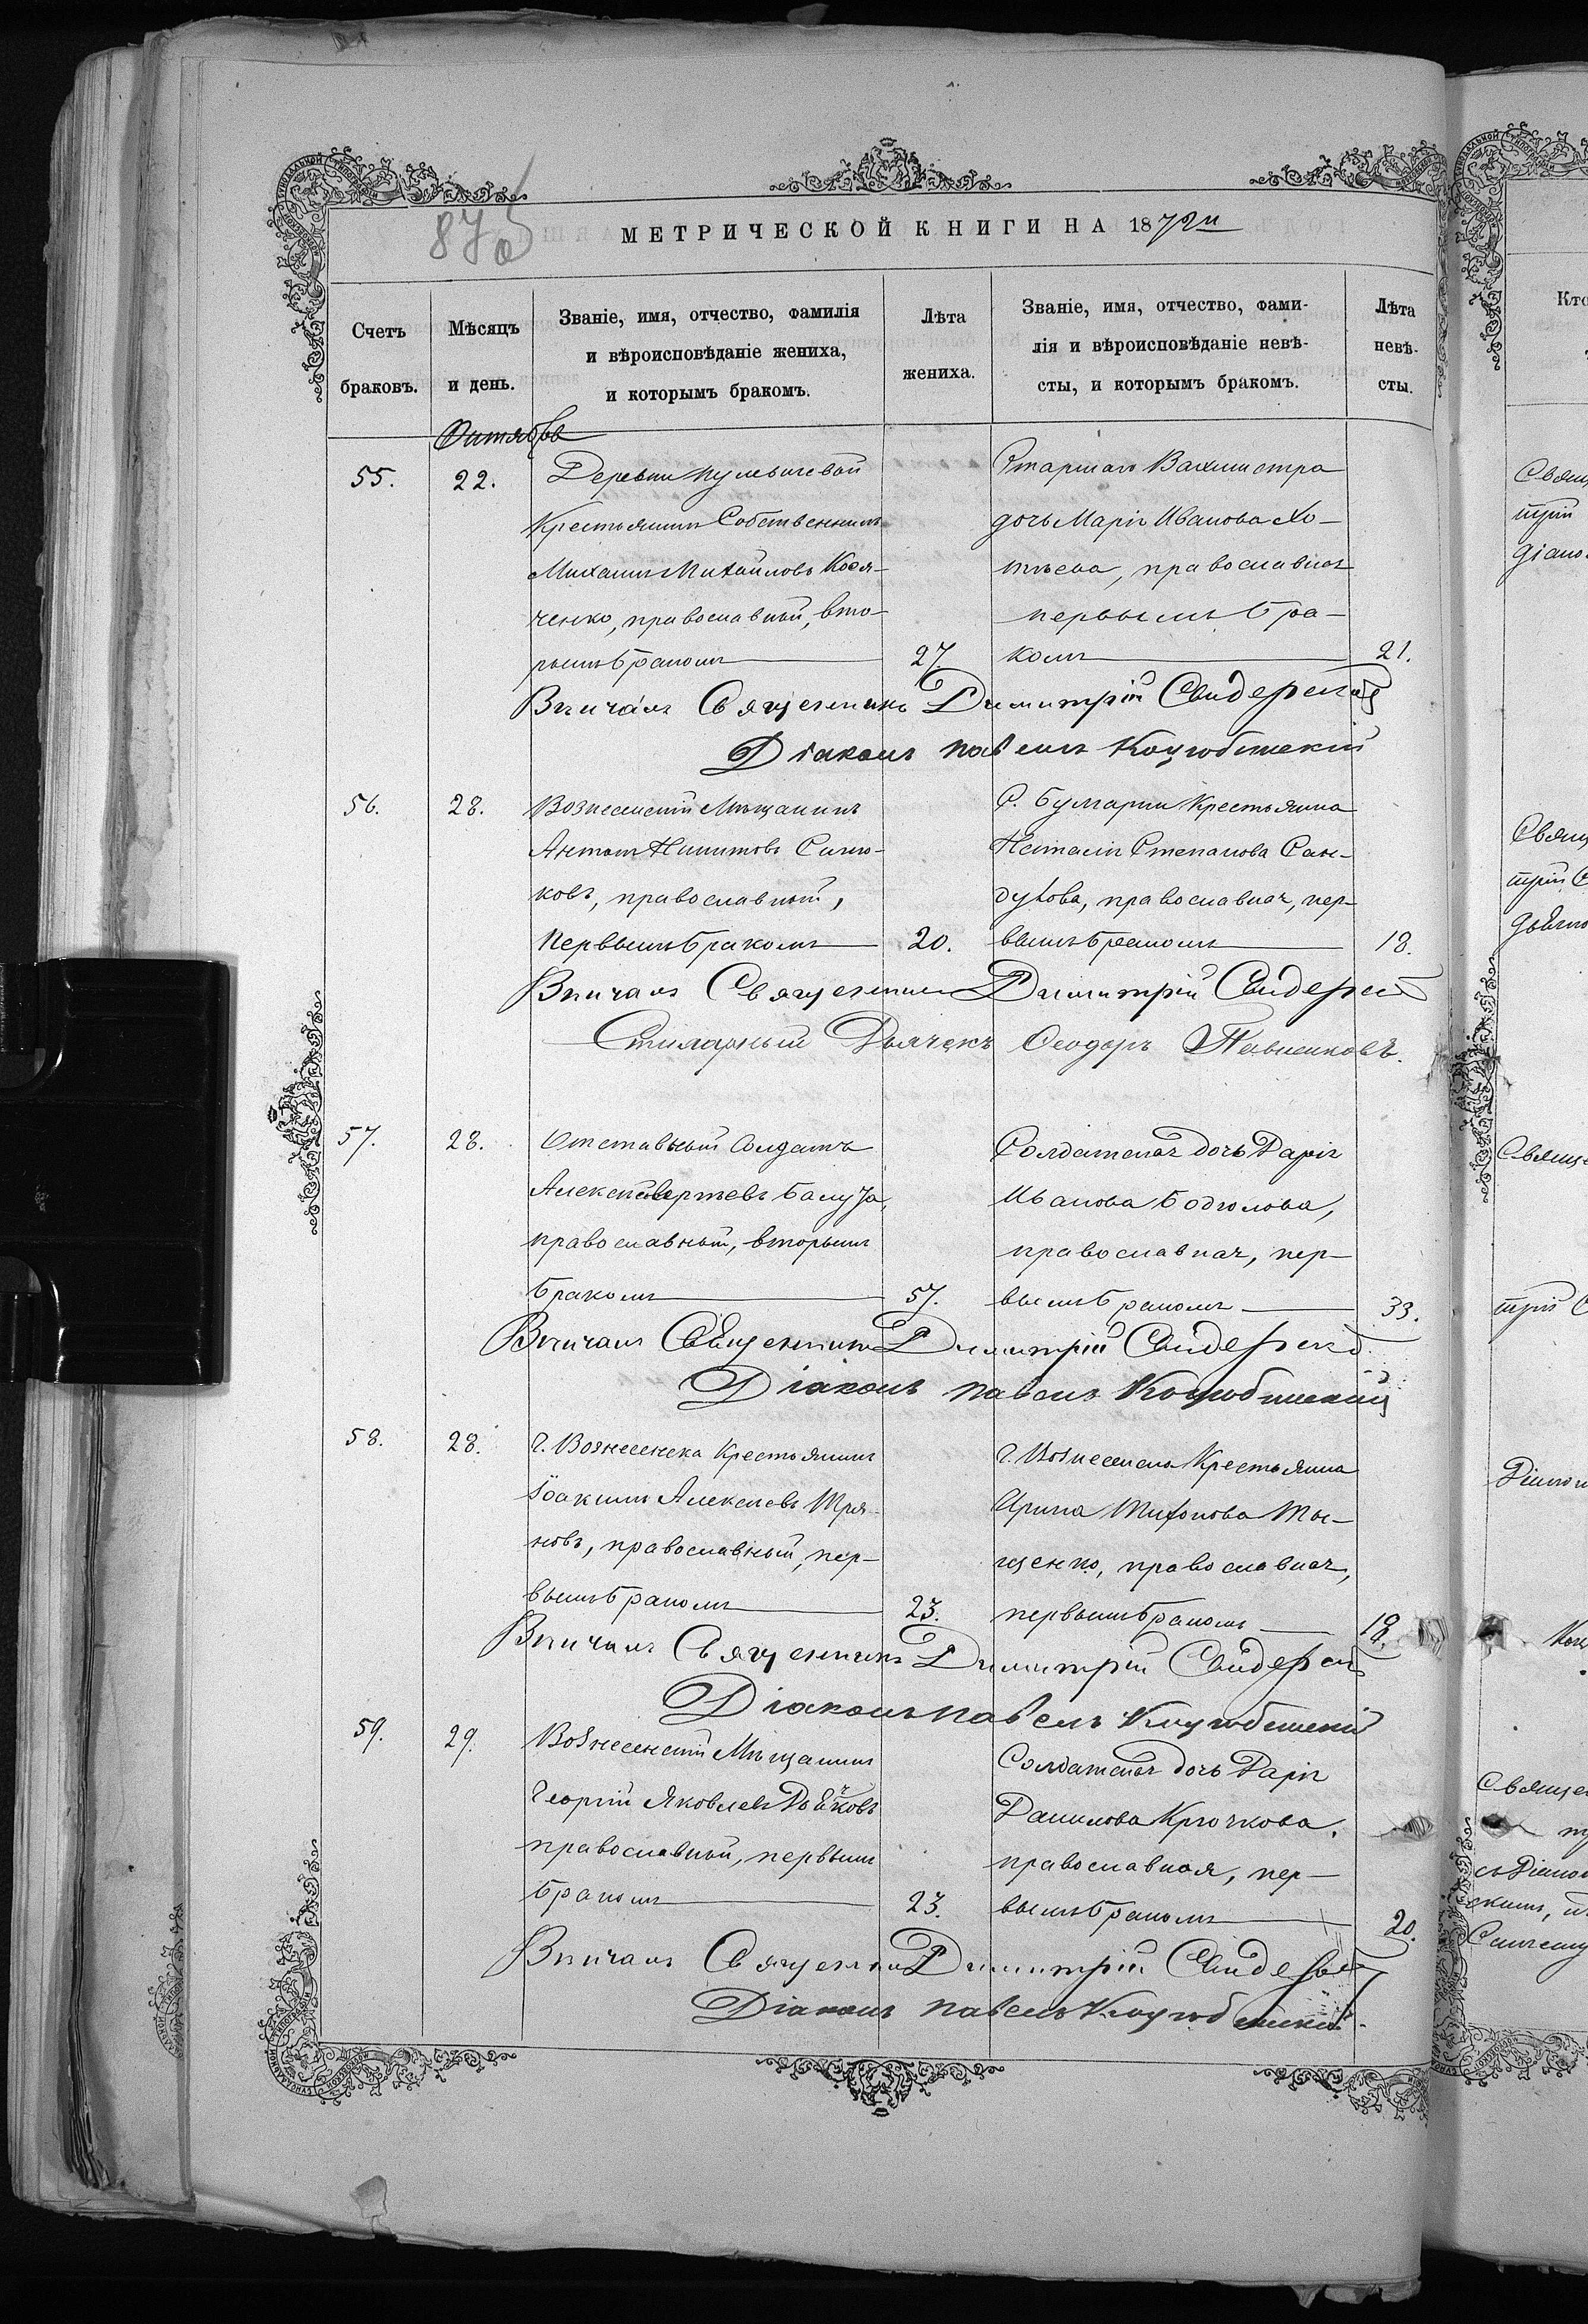 870
МЕТРИЧЕСКОЙ КНИГИ НА 1872й
Счетъ браковъ.
Мѣсяцъ и день.
Званіе, имя, отчество, фамилія
и вѣроисповѣданіе жениха,
и которымъ бракомъ.
Лѣта жениха.
Званіе, имя, отчество, фами-
лія и вѣроисповѣданіе невѣ-
сты, и которымъ бракомъ.
Лѣта невѣ-
сты.
Октябрь
55. 22. Деревни
Крестьянинъ Собственникъ
Михаилъ Михайловъ Кося-
ченко, православный, вто-
рымъ бракомъ 27.
Старшаго Вахмистра
дочь Марія Иванова Хо-
православная
первымъ бра-
комъ 21.
Вѣнчалъ Священникъ Димитрій Свидерскій
Діаконъ Павелъ Коцюбинскій
56. 28. Вознесенскій Мѣщанинъ
Антонъ Никитовъ Синю-
ковъ, православный,
первымъ бракомъ 20.
С. Булгарки Крестьянка
Наталія Степанова Сан-
духова, православная, пер-
вымъ бракомъ 18.
Вѣнчалъ Священникъ Димитрій Свидерскій
Стихарный Дьячекъ Ѳеодоръ Павленковъ.
57. 28. Отставный Солдатъ
Алексѣй
православный, вторымъ
бракомъ 57.
Солдатская дочь Дарія
Иванова Боднова,
православная, пер-
вымъ бракомъ 33.
Вѣнчалъ Священникъ Димитрій Свидерскій
Діаконъ Павелъ Коцюбинскій
58. 28. г. Вознесенска Крестьянинъ
Іоакимъ Алексѣевъ Тря-
новъ, православный, пер-
вымъ бракомъ 23.
г. Вознесенска Крестьянка
Ирина Тихонова Ты-
щенко, православная,
первымъ бракомъ 18.
Вѣнчалъ Священникъ Димитрій Свидерскій
Діаконъ Павелъ Коцюбинскій
59. 29. Вознесенскій Мѣщанинъ
Георгій Яковлевъ Дьячковъ
православный, первымъ
бракомъ 23.
Солдатская дочь Дарія
Данилова Крючкова.
православная, пер-
вымъ бракомъ 20.
Вѣнчалъ Священникъ Димитрій Свидерскій
Діаконъ Павелъ Коцюбинскій.